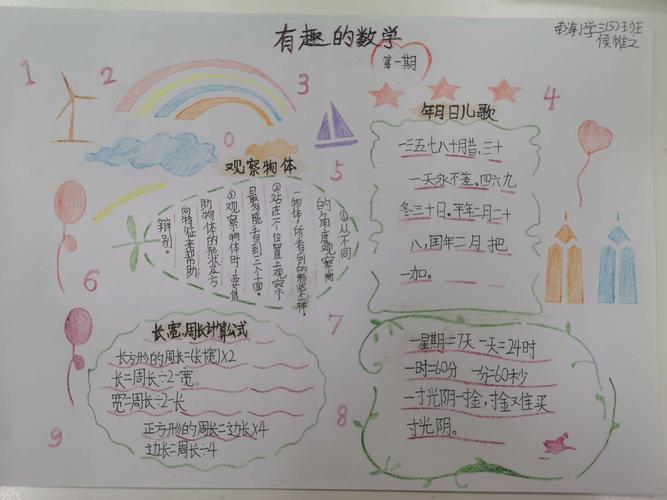 有趣的数学
第一期
南海小学三(5)班
侯惟之
1
2
3
4
0
5
6
7
8
9
观察物体
①从不同
的角度观察同
一物体,所看到的形状不一样。
②站在一个位置上观察,
最多能看到三个面。
③观察物体时,要借
助物体的形状及方
向特征来帮助
辩别。
年月日儿歌
一三五七八十月腊,三十
一天永不差。四六九
冬三十日。平年二月二十
八,闰年二月把
一加。
长、宽、周长计算公式
长方形的周长=(长+宽)×2
长=周长÷2-宽。
宽=周长÷2-长
正方形的周长=边长×4
边长=周长÷4
一星期=7天 一天=24时
一时=60分 一分=60秒
一寸光阴一寸金,寸金难买
寸光阴。